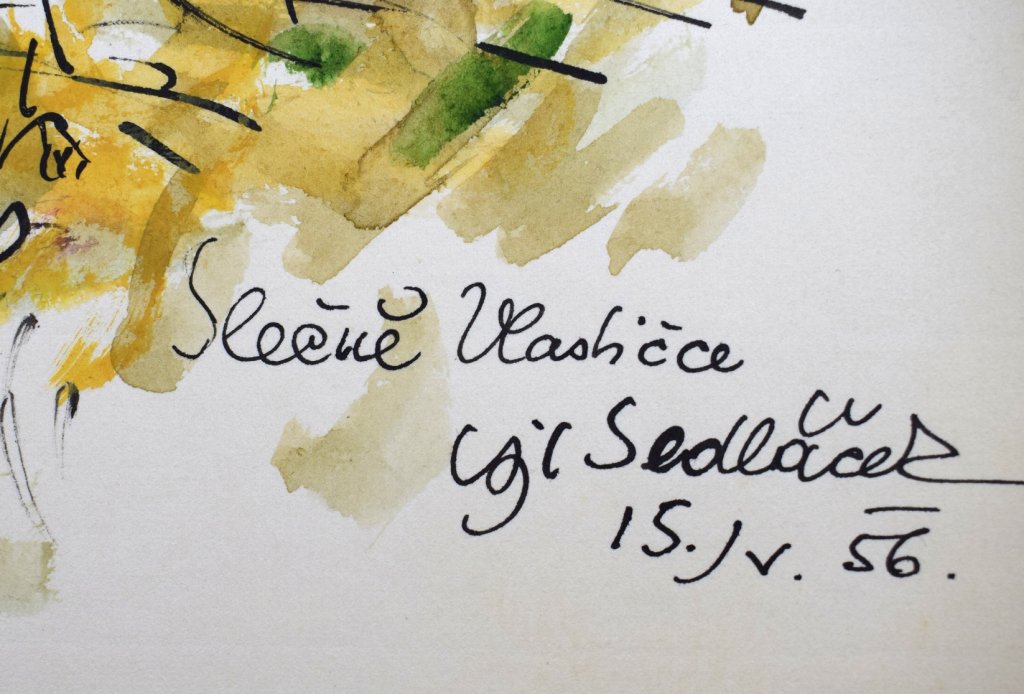 Slečně Vlastičce
Vojt Sedláček
15. IV. 56.